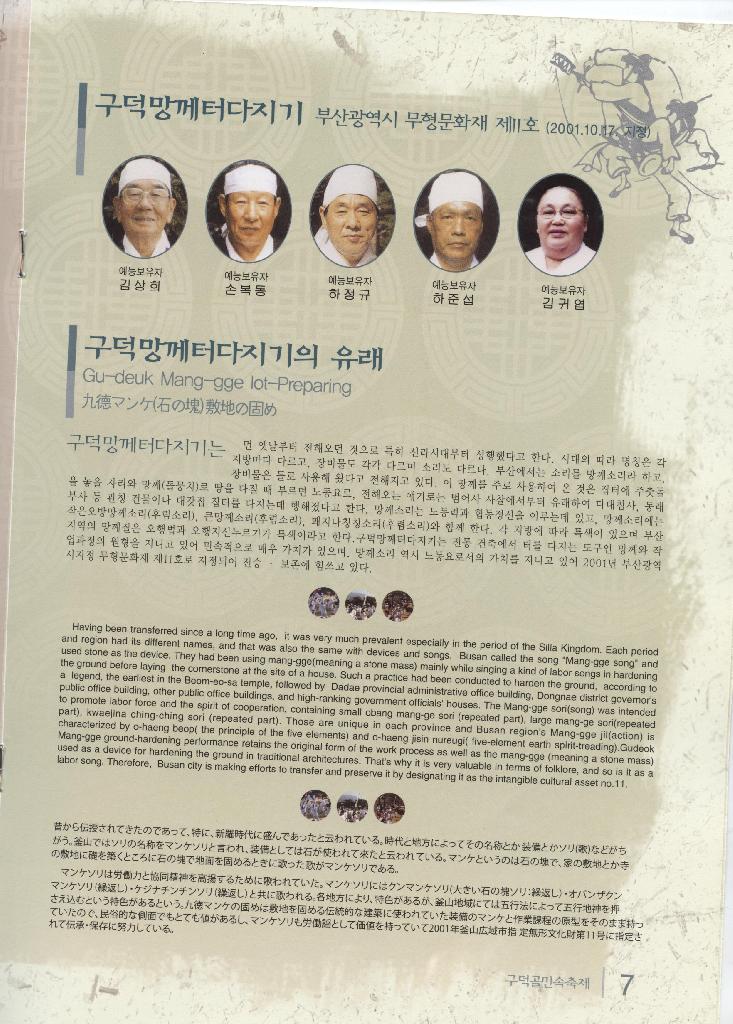 구덕망께터다지기 부산광역시 무형문화재 제11호 (2001.10.17. 지정)
예능보유자 예능보유자 예능보유자 예능보유자 예능보유자
김상희 손복동 하정규 하준섭 김귀엽
구덕망께터다지기의 유래
Gu-deuk Mang-gge lot-Preparing
九徳マンケ(石の塊)敷地の固め
구덕망께터다지기는 먼 옛날부터 전해오던 것으로 특히 신라시대부터 성행했다고 한다. 시대의 따라 명칭은 각
지방마다 다르고, 장비물도 각각 다르며 소리도 다르다. 부산에서는 소리를 망께소리라 하고,
장비물은 돌로 사용해 왔다고 전해지고 있다. 이 망께를 주로 사용하여 온 것은 집터에 주춧돌
을 놓을 자리와 망께(돌뭉치)로 땅을 다질 때 부르던 노동요로, 전해오는 얘기로는 범어사 사찰에서부터 유래하여 다대첨사, 동래
부사 등 관청 건물이나 대갓집 집터를 다지는데 행해졌다고 한다. 망께소리는 노동력과 협동정신을 이루는데 있고, 망께소리에는
작은오방망께소리(후렴소리), 큰망께소리(후렴소리), 쾌지나칭칭소리(후렴소리)와 함께 한다. 각 지방에 따라 특색이 있으며 부산
지역의 망께질은 오행법과 오행지신누르기가 특색이라고 한다.구덕망께터다지기는 전통 건축에서 터를 다지는 도구인 망께와 작
업과정의 원형을 지니고 있어 민속적으로 매우 가치가 있으며, 망께소리 역시 노동요로서의 가치를 지니고 있어 2001년 부산광역
시지정 무형문화재 제11호로 지정되어 전승 · 보존에 힘쓰고 있다.
Having been transferred since a long time ago, it was very much prevalent especially in the period of the Silla Kingdom. Each period
and region had its different names, and that was also the same with devices and songs. Busan called the song "Mang-gge song" and
used stone as the device. They had been using mang-gge(meaning a stone mass) mainly while singing a kind of labor songs in hardening
the ground before laying the cornerstone at the site of a house. Such a practice had been conducted to harden the ground, according to
a legend, the earliest in the Beom-eo-sa temple, followed by Dadae provincial administrative office building, Dongnae district governor's
public office building, other public office buildings, and high-ranking government officials' houses. The Mang-gge sori(song) was intended
to promote labor force and the spirit of cooperation, containing small obang mang-ge sori (repeated part), large mang-ge sori(repeated
part), kwaejina ching-ching sori (repeated part). Those are unique in each province and Busan region's Mang-gge jil(action) is
characterized by o-haeng beop( the principle of the five elements) and o-haeng jisin nureugi( five-element earth spirit-treading).Gudeok
Mang-gge ground-hardening performance retains the original form of the work process as well as the mang-gge (meaning a stone mass)
used as a device for hardening the ground in traditional architectures. That's why it is very valuable in terms of folklore, and so is it as a
labor song. Therefore, Busan city is making efforts to transfer and preserve it by designating it as the intangible cultural asset no.11.
昔から伝授されてきたのであって、特に、新羅時代に盛んであったと云われている。時代と地方によってその名称とか装備とかソリ(歌)などがち
がう。釜山ではソリの名称をマンケソリと言われ、装備としては石が使われて来たと云われている。マンケというのは石の塊で、家の敷地とか寺
の敷地に礎を築くところに石の塊で地面を固めるときに歌った歌がマンケソリである。
マンケソリは労働力と協同精神を高揚するために歌われていた。マンケソリにはクンマンケソリ(大きい石の塊ソリ:繰返し)・オバンザクン
マンケソリ(繰返し)・ケジナチンチンソリ(繰返し)と共に歌われる。各地方により、特色があるが、釜山地域には五行法によって五行地神を押
さえ込むという特色があるという。九徳マンケの固めは敷地を固める伝統的な建築に使われていた装備のマンケと作業課程の原型をそのまま持っ
ていたので、民俗的な側面でもとても値があるし、マンケソリも労働謡として価値を持っていて2001年釜山広域市指 定無形文化財第11号に指定さ
れて伝承・保存に努力している。
구덕골민속축제 7